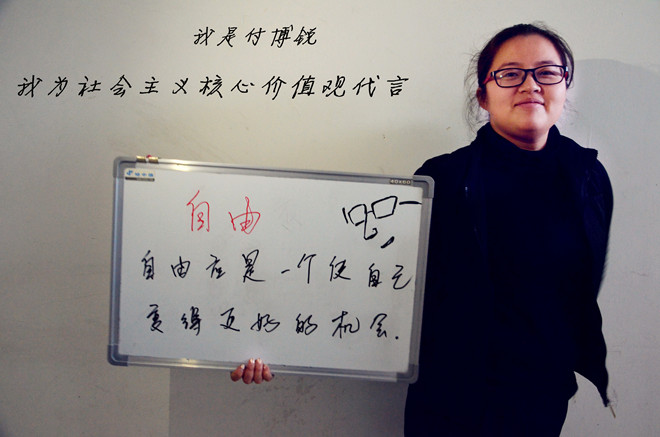 我是付博锐
我为社会主义核心价值观代言
自由
自由应是一个使自己
变得更好的机会.